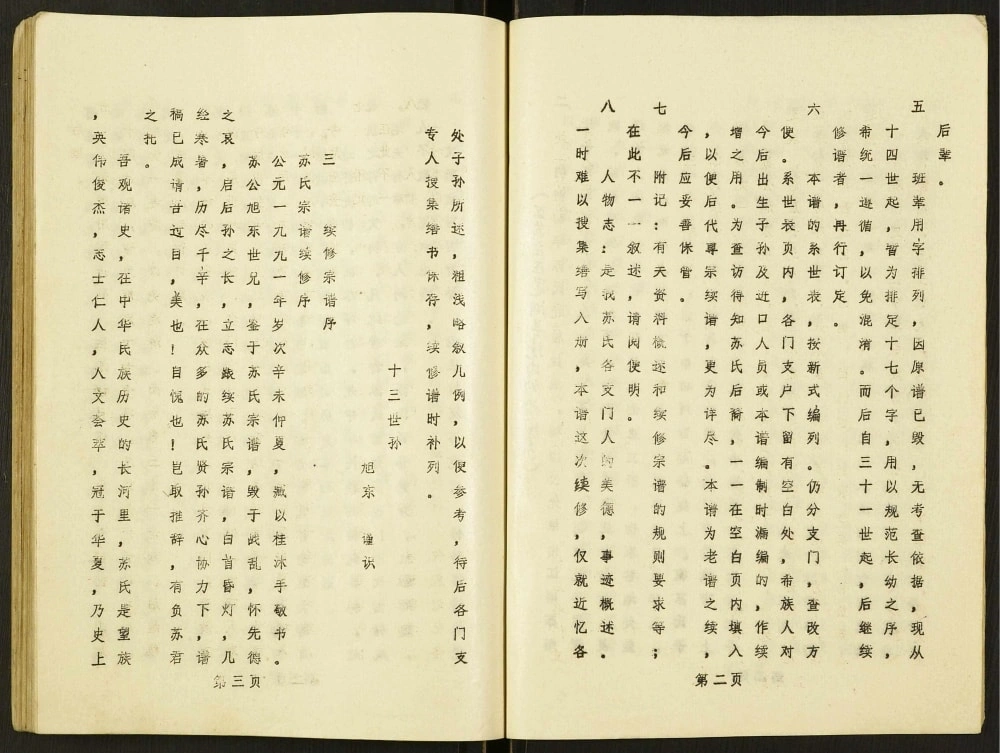 后辈。
五 班辈用字排列，因原谱已毁，无考查依据，现从
十四世起，暂为排定十七个字，用以规范长幼之序，
希统一遵循，以免混淆。而后自三十一世起，后继续
修谱者，再行订定。
六 本谱的系世表，按新式编列。仍分支门，查改方
便。系世表页内，各门支户下留有空白处，希族人对
今后出生子孙及近口人员或本谱编制时漏编的，作续
增之用。为查访得知苏氏后裔，一一在空白页内填入
，以便后代寻宗续谱，更为详尽。本谱为老谱之续，
今后应妥善保管。
七 附记：有关资料概述和续修宗谱的规则要求等；
在此不一一叙述，请阅便明。
八 人物志：是我苏氏各支门人的美德，事迹概述。
一时难以搜集缮写入册，本谱这次续修，仅就近忆各
第二页
处子孙所述，粗浅略叙几例，以便参考，待后各门支
专人搜集缮书保存，续修谱时补列。
十三世孙
旭东 谨识
三 续修宗谱序
苏氏宗谱续修序
公元一九九一年岁次辛未仲夏，臧以桂沐手敬书。
苏公旭东世兄，鉴于苏氏宗谱，毁于战乱，怀先德
之哀，启后孙之长，立志缵续苏氏宗谱，白首昏灯，几
经寒暑，历尽千辛，在众多的苏氏贤孙齐心协力下，谱
稿已成请吾过目，美也！自愧也！岂取推辞，有负苏君
之托。
吾观诸史，在中华民族历史的长河里，苏氏是望族
，英伟俊杰，志士仁人，人文荟萃，冠于华夏，乃史上
第三页